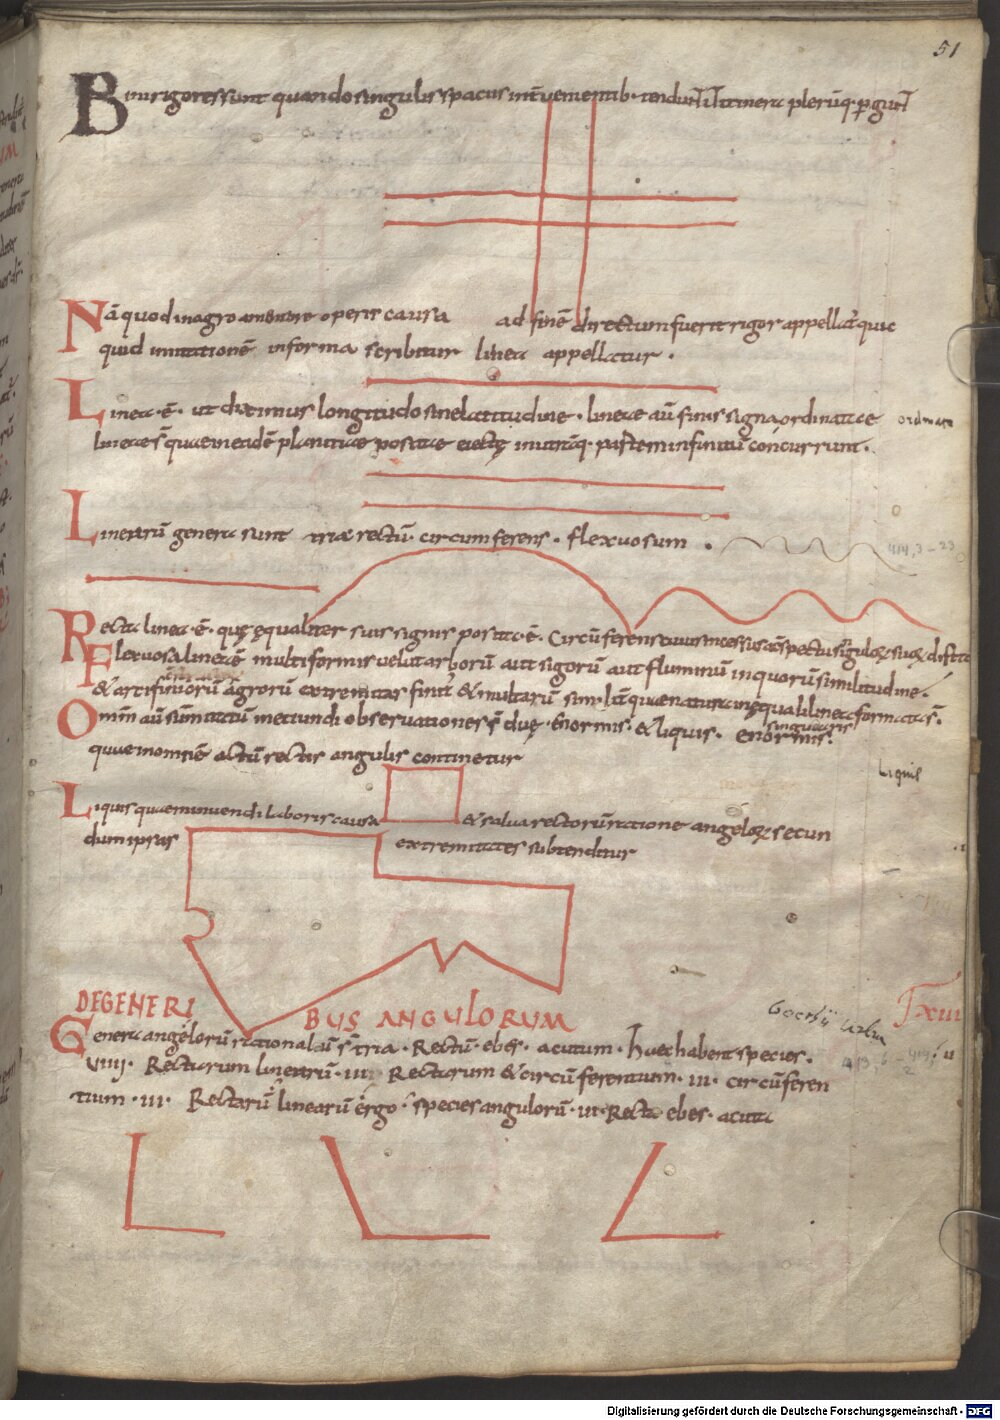 51
Bini rigores sunt quando singulis spaciis int̄uenientib· tenduntˉ ī itinera plerūq· ꝑgunt
Nā quod in agro operis causa ad finē directum fuerit rigor appellat̄ quic
quid imitationē in forma scribitur linea appellatur .
Linea·ē· ut diximus longitudo sine latitudine · lineae aū fines signa ordinatae
ordinata
lineae s̄ quae in eadē planitiae positae eiectę in utrāq· partem in infinitū concurrunt·
Linearū genera sunt tria rectū· circumferens · flexuosum .
414,3-23
Recta linea·ē· quę ęqualiter suis signis posita·ē· Circūferens
Flexuosa linea ē multiformis uelut arborū aut sigorū aut fluminū in quorū similitudinē·
& arcifiniorū agrorū extremitas finit̄ & multarū similit̄ quae natura inęquali linea formatas̄·
Omīn aū sūmitatū metiundi obseruationes s̄ duę · Enormis· & liquis· enormis·
singularis
quae in omnē actū rectis angulis continetur
Liquis
Liquis quae minuendi laboris causa & salua rectorū ratione angeloꝝ secun
dum ipsas extremitates subtenditur
DE GENERI BUS ANGULORUM
Genera angelorū rationaliū s̄ tria · Rectū· ebes· acutum · haec habent species·
VIIII· Rectarum linearū· III· Rectarum & circūferentium· III· circūferen
tium · III· Rectarū linearū ergo· species angulorū· III· Recta ebes· acuta
Digitalisierung gefördert durch die Deutsche Forschungsgemeinschaft - DFG